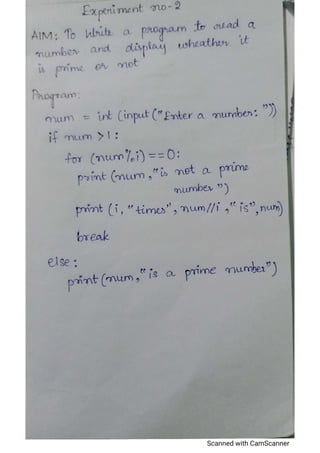 Experiment no-2
AIM: To Write a program to read a
number and display wheather it
is prime or not
Program:
num = int (input ("Enter a number: "))
if num > 1:
for (num % i) == 0:
print (num, "is not a prime
number")
print (i, "times", num//i, "is", num)
break
else:
print (num, "is a prime number")
Scanned with CamScanner